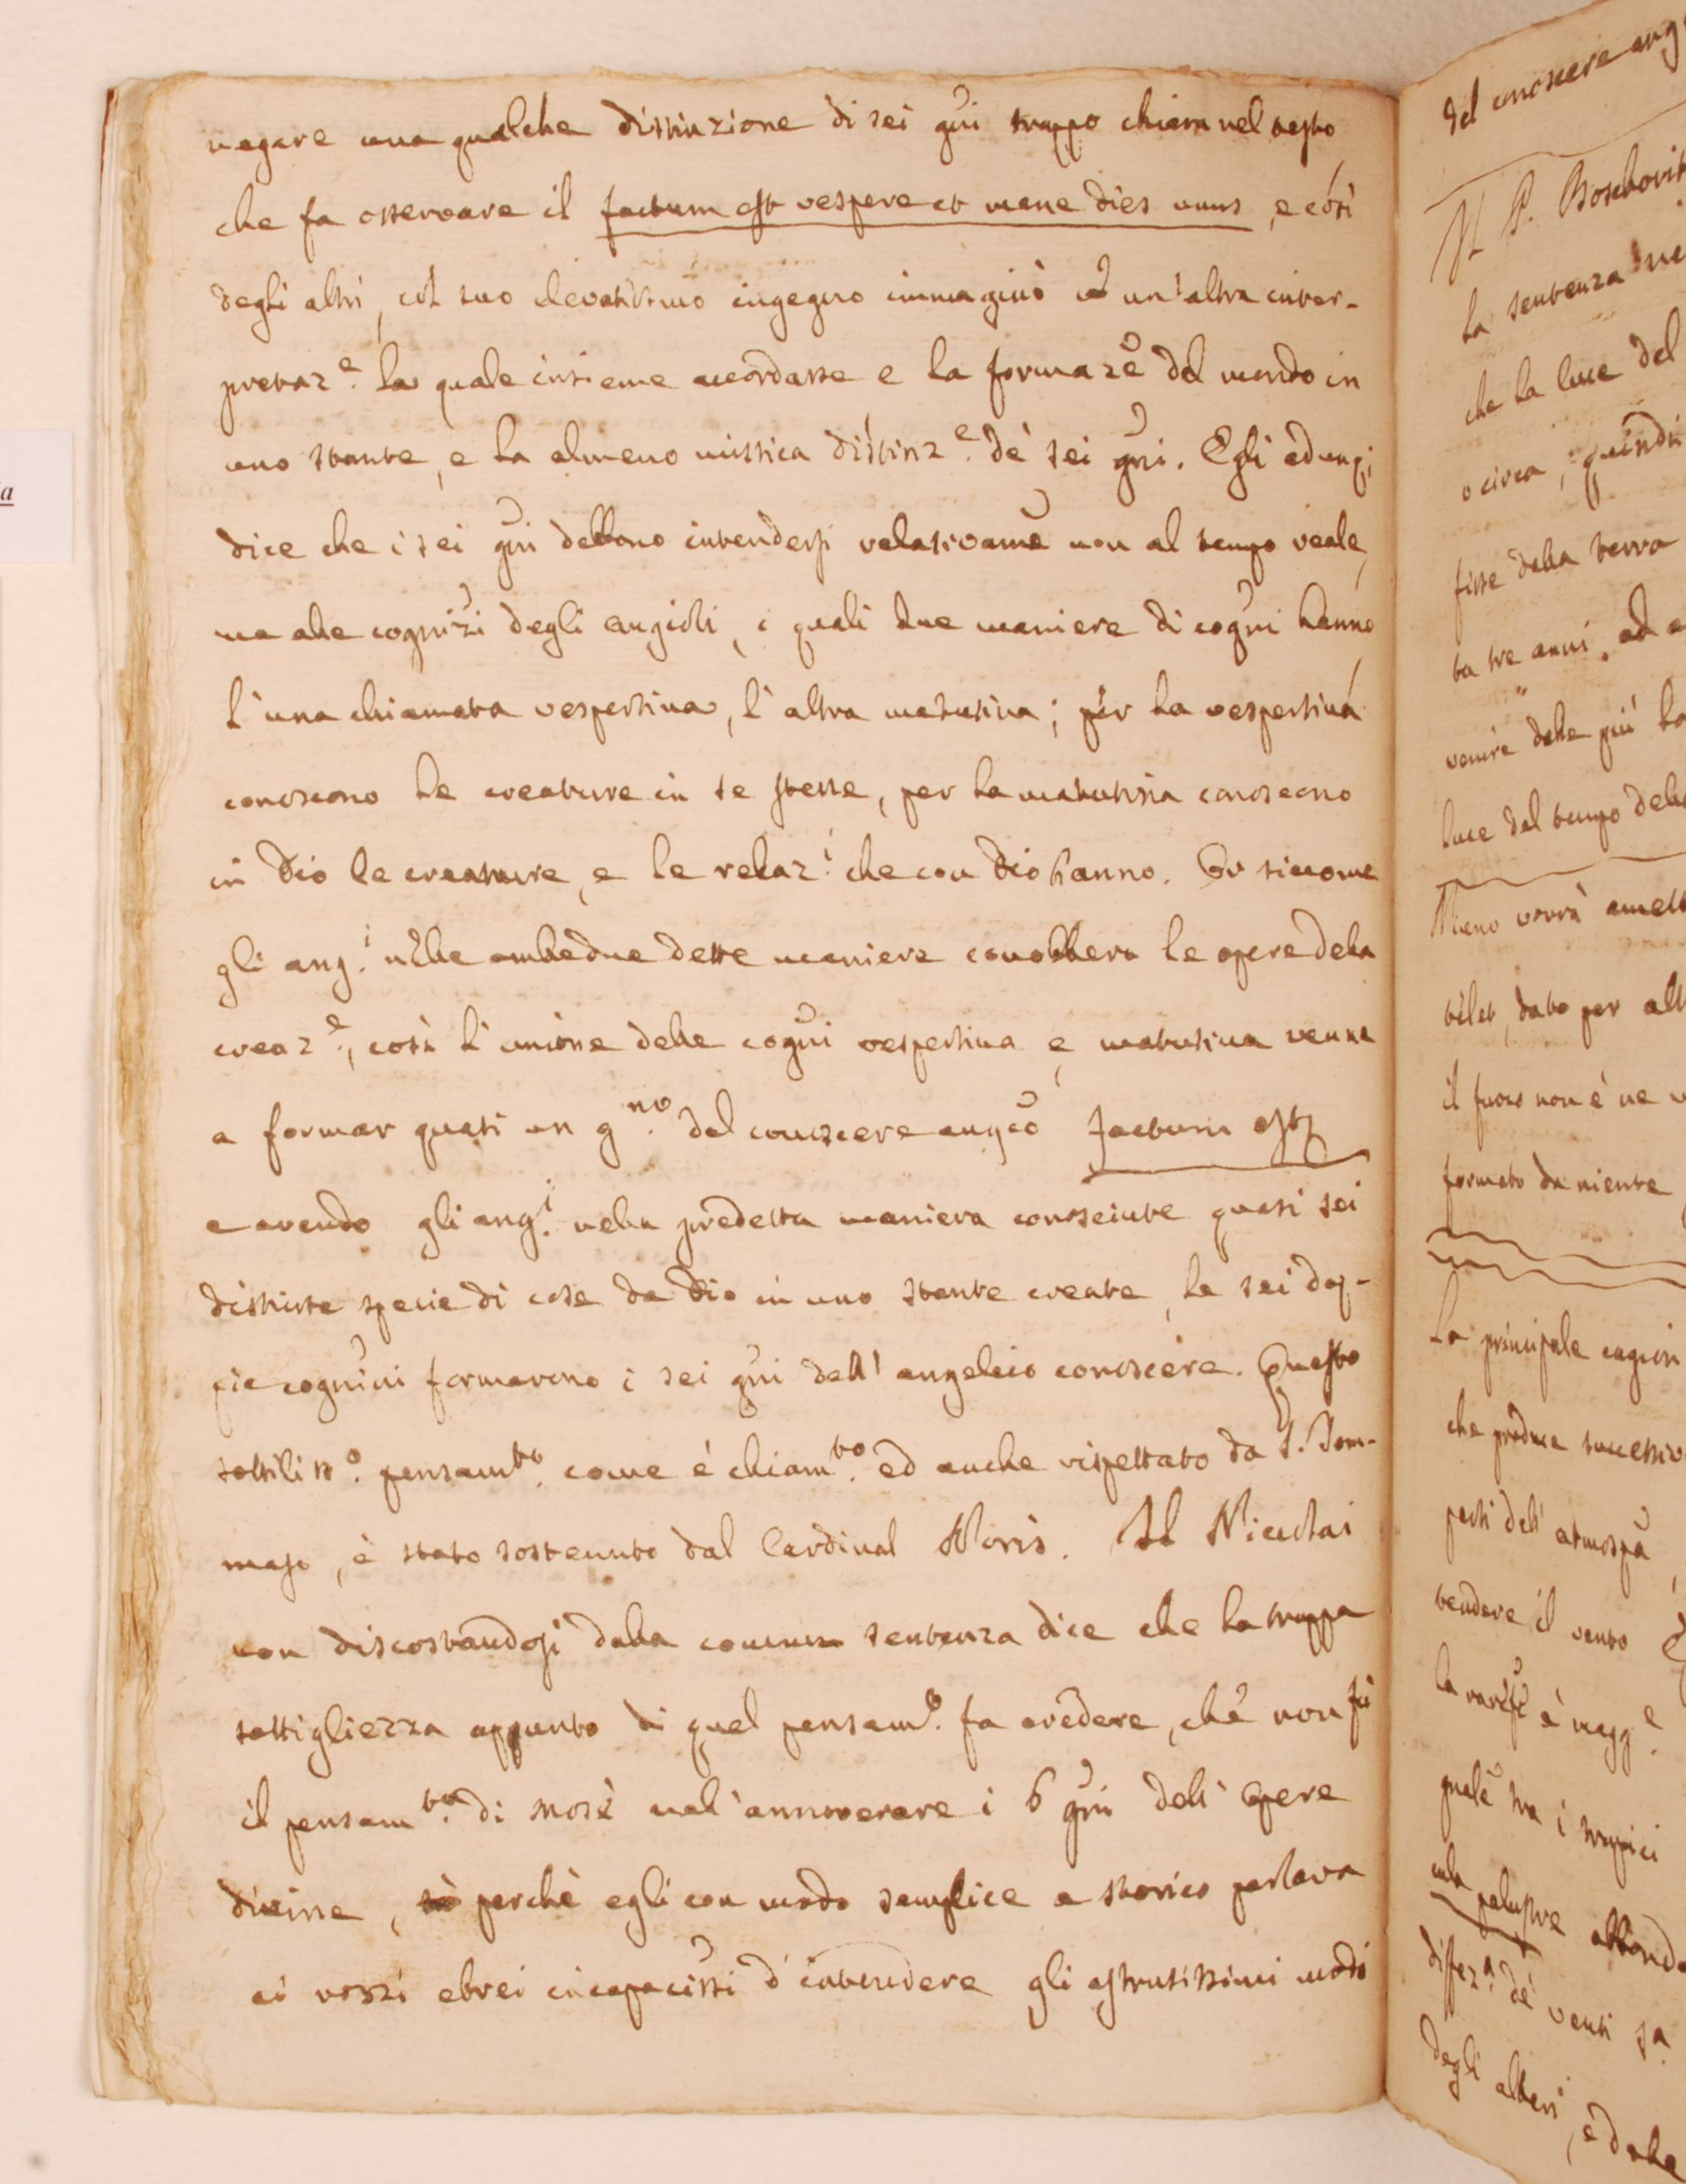 negare una qualche distinzione di sei gni troppo chiara nel testo
che fa osservare il factum est vespere et mane dies unus, e così
degli altri, col suo elevatissimo ingegno immaginò un'altra inter-
pretaz.e la quale insieme accordasse e la formaze del mondo in
uno stante, e la almeno mistica distinz.e de' sei gni. Egli adunq;
dice che i sei gni debbono intendersi relativame non al tempo reale,
ma alle cognizi degli angioli, i quali due maniere di cogni hanno
l'una chiamata vespertina, l'altra matutina; per la vespertina
conoscono le creature in se stesse, per la matutina conoscono
in Dio le creature, e le relaz.i che con Dio hanno. Or siccome
gli ang.i nelle ambedue dette maniere conobbero le opere della
creaz.e, così l'unione delle cogni vespertina e matutina venne
a formar quasi un g.no del conoscere angco factum est;
e avendo gli ang.i nella predetta maniera conosciute quasi sei
distinte specie di cose da Dio in uno stante create, le sei dop-
pie cognini formarono i sei gni dell'angelico conoscere. Questo
sottiliss.o pensam.to come è chiam.to ed anche rispettato da S. Tom-
maso, è stato sostenuto dal Cardinal Noris. Il Nicolai
non discostandosi dalla comune sentenza dice che la troppa
sottigliezza appunto di quel pensam.o fa credere, che non fù
il pensam.to di Mosè nell'annoverare i 6 gni dell'opere
divine, perchè egli con modo semplice e storico parlava
ai rozzi ebrei incapacissi d'intendere gli astrusissimi modi
del conoscere ang
Il P. Boschovit
la sentenza
che la luce del
o circa, quindi
fisse dalla terra
ta tre anni, ed
venire dalle più
luce del tempo
Niuno vorrà
dato per
il fuoco non è ne
formato da niente
La principale cagion
che produce successiv
parti dell' atmosfa
tendere il vento
la è magg.e
quale tra i tropici
palustre
differ.a de' venti
degli alberi, e dalla